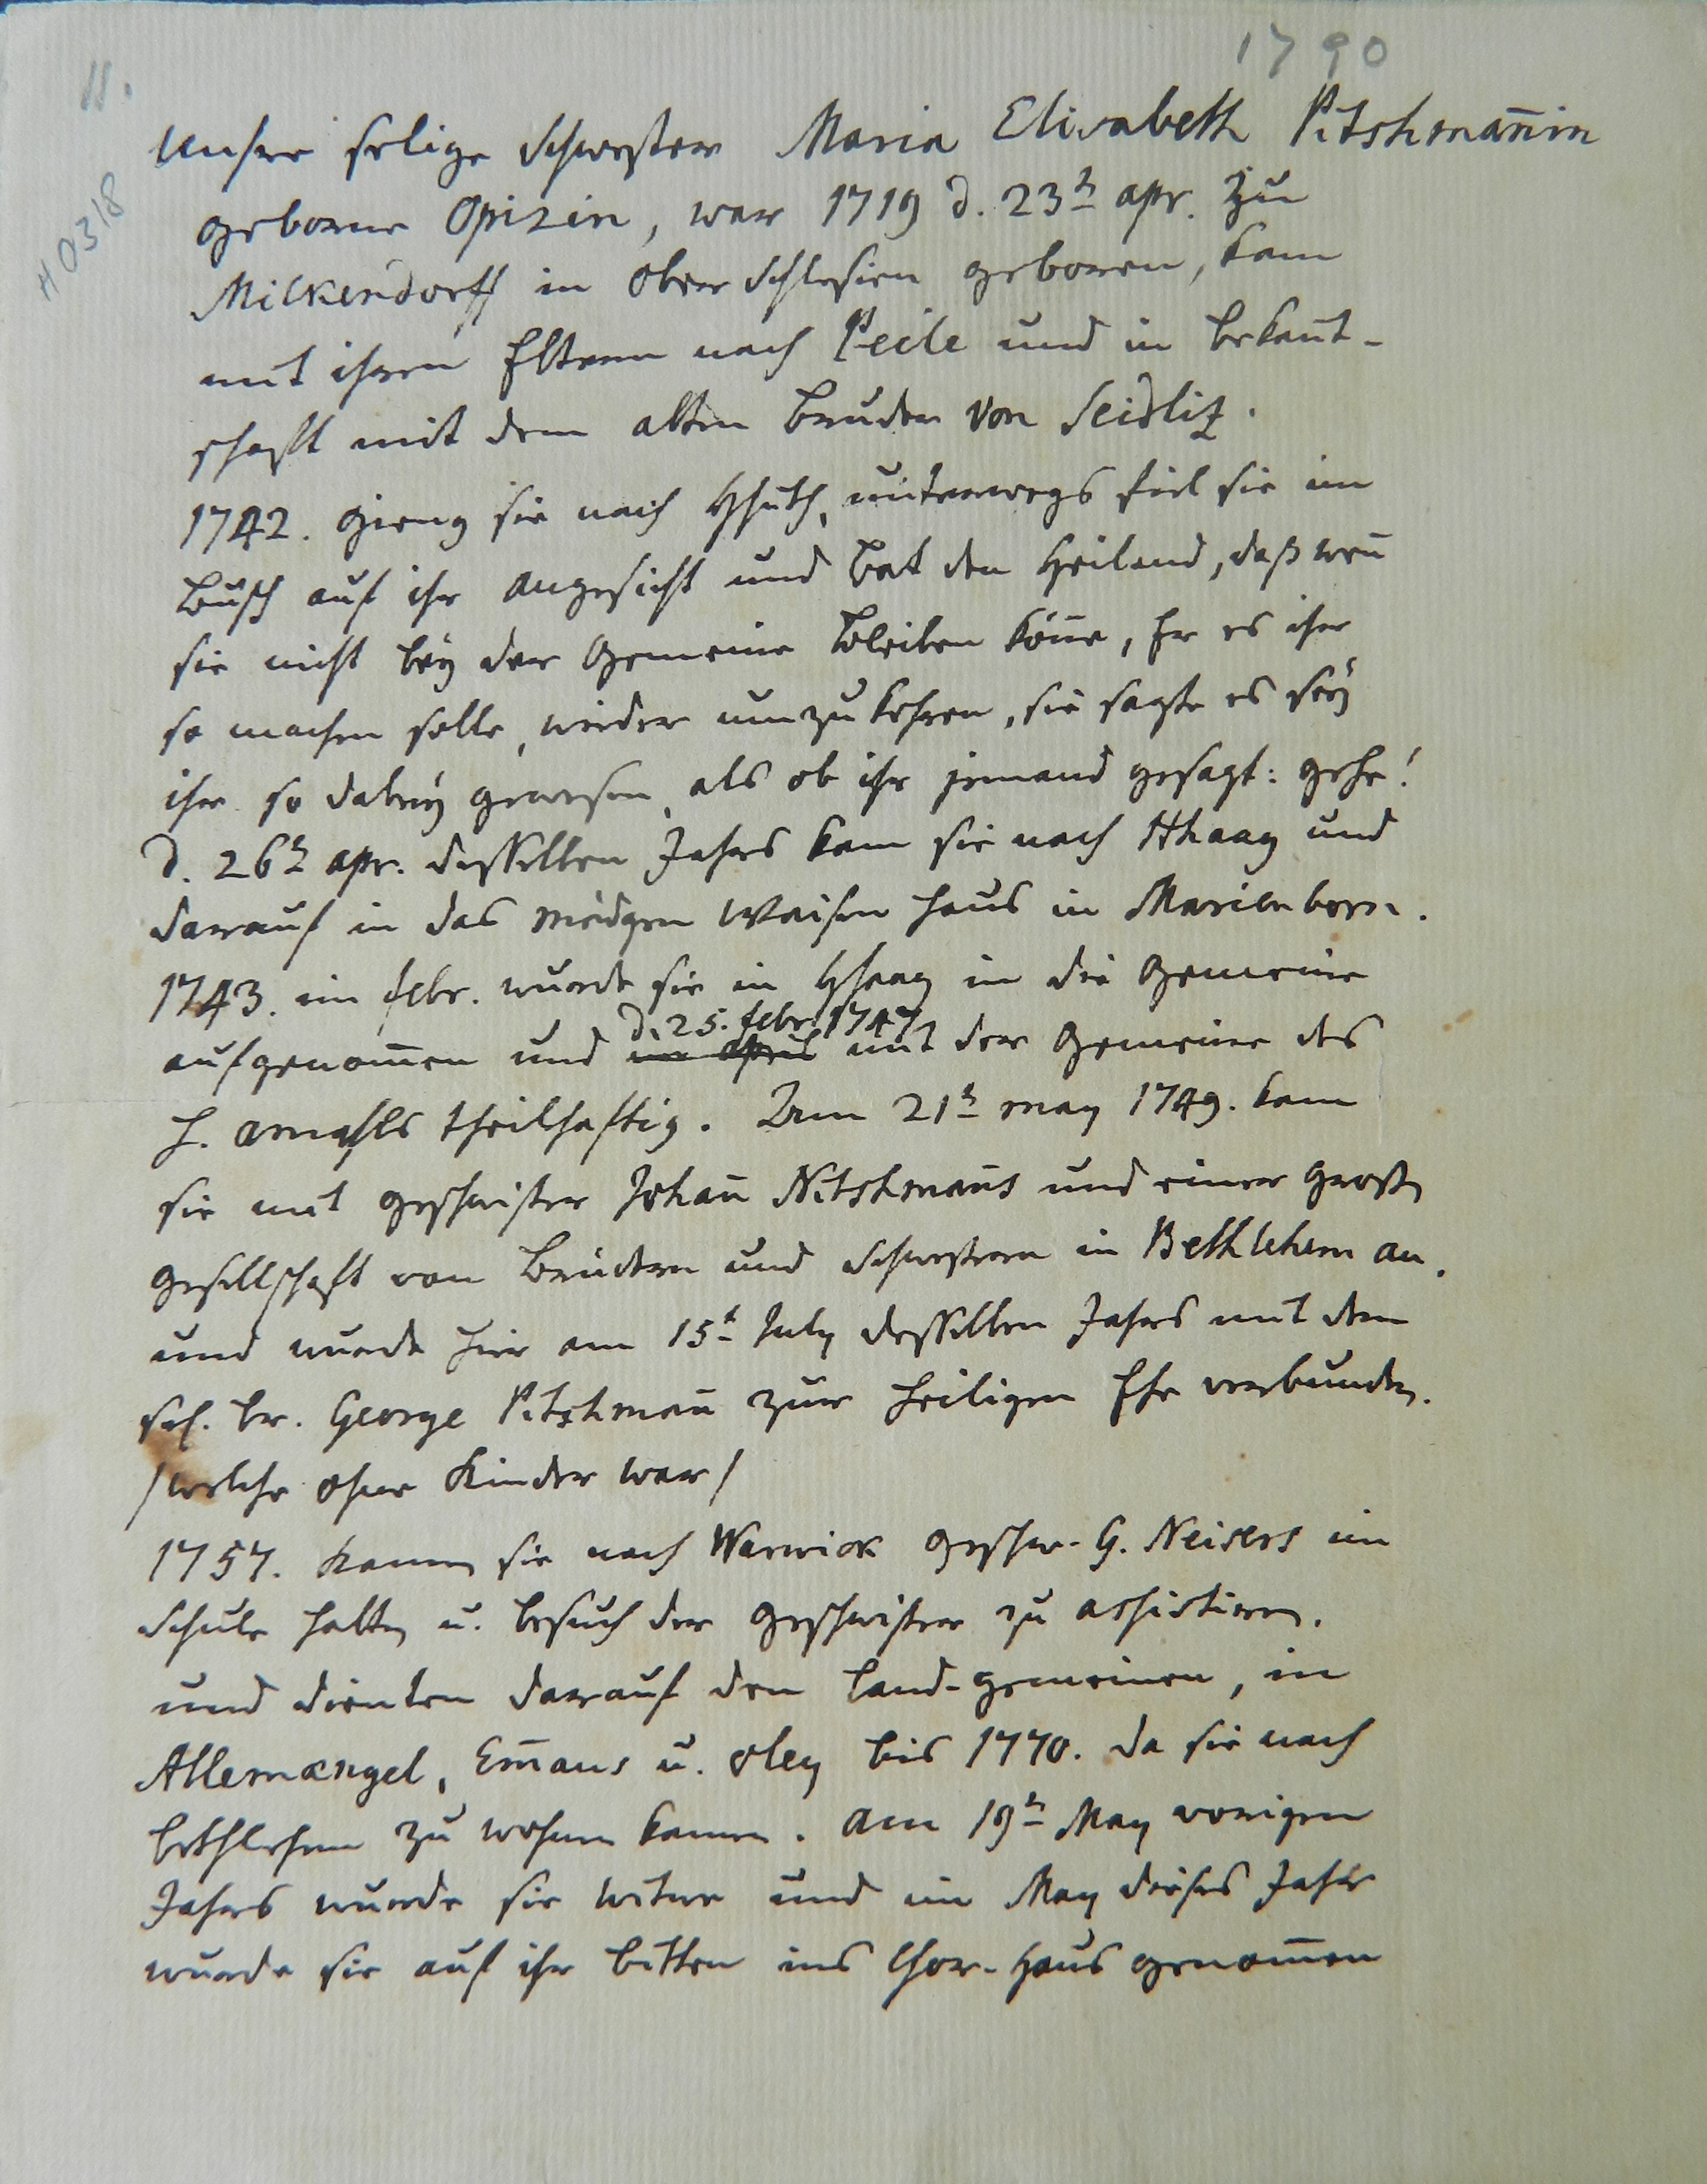 1790
11.
H 0318
Unsre selige Schwester Maria Elisabeth Pitshman̄in
geborne Opizin, war 1719 d. 23t apr. zu
Milkendorff in Ober Schlesien geboren, kam
mit ihren Eltern nach Peile und in bekan̄t-
schaft mit dem alten Bruder von Seidlitz.
1742. gieng sie nach Hhuth, unterwegs fiel sie im
Busch auf ihr Angesicht und bat den Heiland, daß wen̄
sie nicht bey der Gemeine bleiben kön̄e, Er es ihr
so machen solle, wieder umzukehren, sie sagte es sey
ihr so dabey gewesen, als ob ihr jemand gesagt: gehe!
d. 26t apr. desselben Jahrs kam sie nach Hhaag und
darauf in das Mädgen Waisen Haus in Marienborn.
1743. im febr. wurde sie in Hhaag in die Gemeine
d. 25. febr. 1747
aufgenom̄en und im April mit der Gemeine des
H. Amahls theilhaftig. Den 21t may 1749. kam
sie mit Geschwister Johan̄ Nitshman̄s und einer großn
Gesellschaft von Brüdern und Schwestern in Bethlehem an.
und wurde hier am 15t July desselben Jahrs mit dem
sel. br. George Pitshman̄ zur heiligen Ehe verbunden.
/welche ohne Kinder war/
1757. kamen sie nach Warwick Geschw. G. Neisers im
Schule halten u. besuch der Geschwister zu assistiren.
und dienten darauf den Land-gemeinen, in
Allemængel, Em̄aus u. Oley bis 1770. da sie nach
bethlehem zu wohnen kamen. Am 19t May vorigen
Jahrs wurde sie Witwe und im May dieses Jahrs
wurde sie auf ihr bitten ins Chor-Haus genom̄en